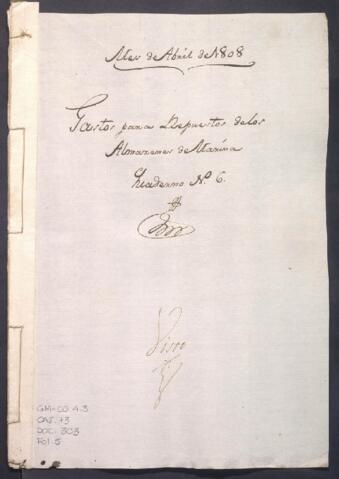 Mes de Abril de 1808
Gastos para Repuestos de los
Almazenes de Marina
Quaderno N.º 6.
Visto
GM-CO 4.3
CAJ. 73
DOC. 303
Fol. 5